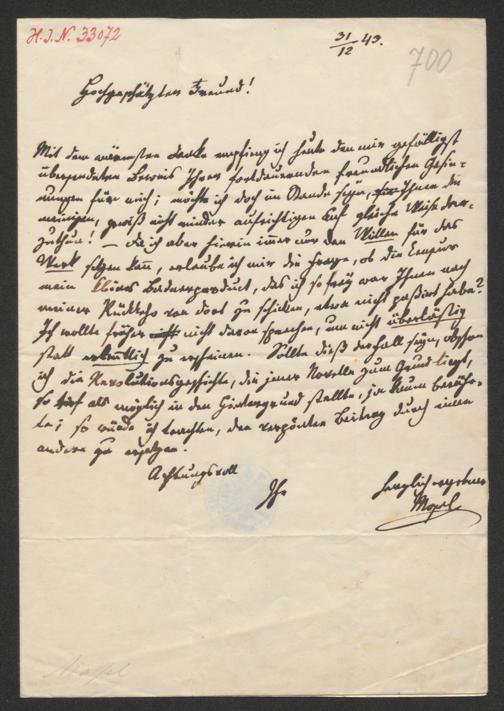 H.I.N. 33072
31/12 43.
700
Hochgeschätzter Freund!
Mit dem wärmsten Danke empfing ich heute den mir gefälligst
übersendeten Beweis Ihrer fortdauernden freundlichen Gesin-
nungen für mich; möchte ich doch im Stande seyn, Ihnen die
meinigen, gewiß nicht minder aufrichtigen auf gleiche Weise dar-
zuthun! – da ich aber hierin immer nur den Willen für das
Werk setzen kann, erlaube ich mir die Frage, ob die Censur
mein kleines Badnerproduct, das ich so frey war Ihnen nach
meiner Rückkehr von dort zu schicken, etwa nicht passirt habe?
Ich wollte früher nicht davon sprechen, um nicht überlästig
statt erkenntlich zu erscheinen. Sollte dieß der Fall seyn, obschon
ich die Revolutionsgeschichte, die jener Novelle zum Grund liegt,
so tief als möglich in den Hintergrund stellte, ja kaum berühr-
te; so würde ich trachten, den verpönten Beitrag durch einen
andern zu ersetzen.
Achtungsvoll
Ihr
herzlich ergebener
Mosel
Mosel